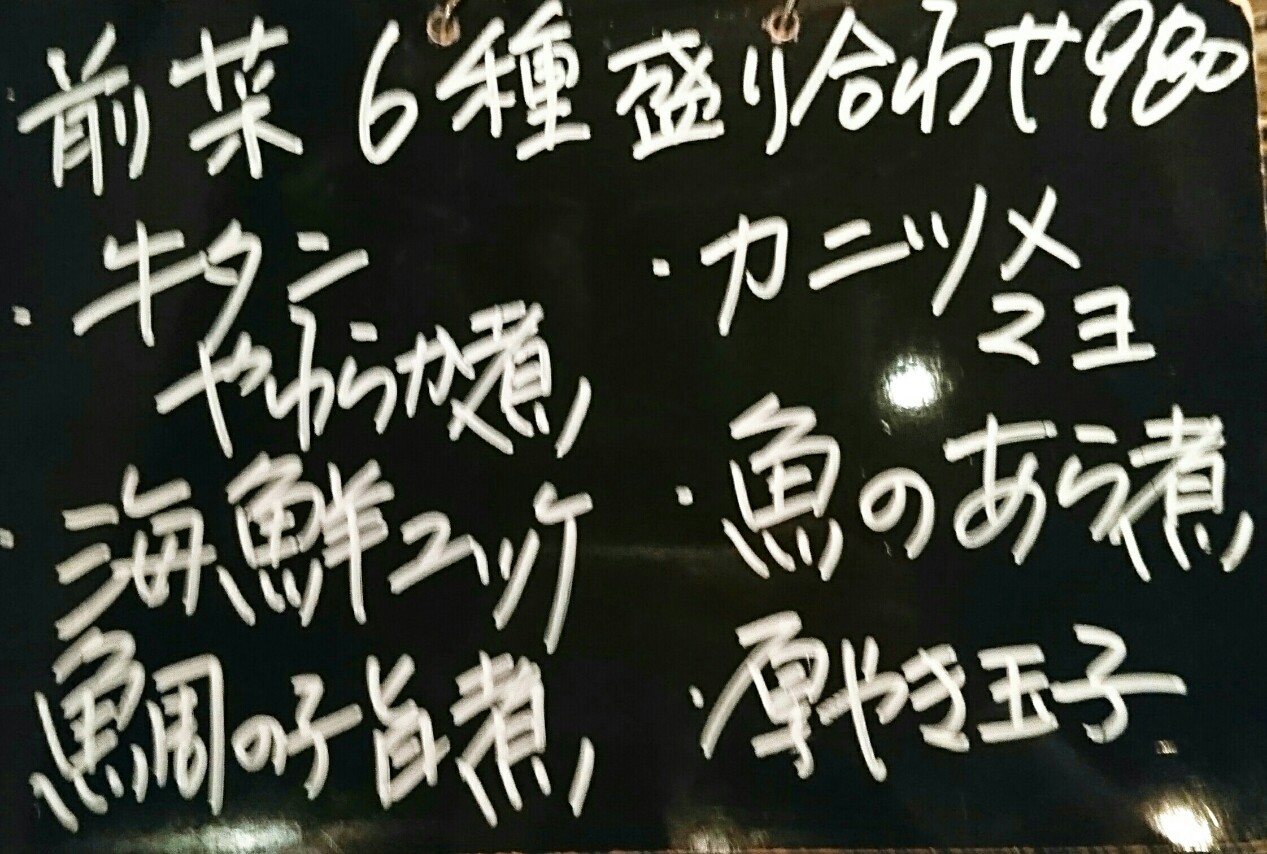 前菜6種盛り合わせ980
・牛タン
やわらか煮
・海鮮ユッケ
鯛の子旨煮
・カニツメ
マヨ
・魚のあら煮
・厚やき玉子